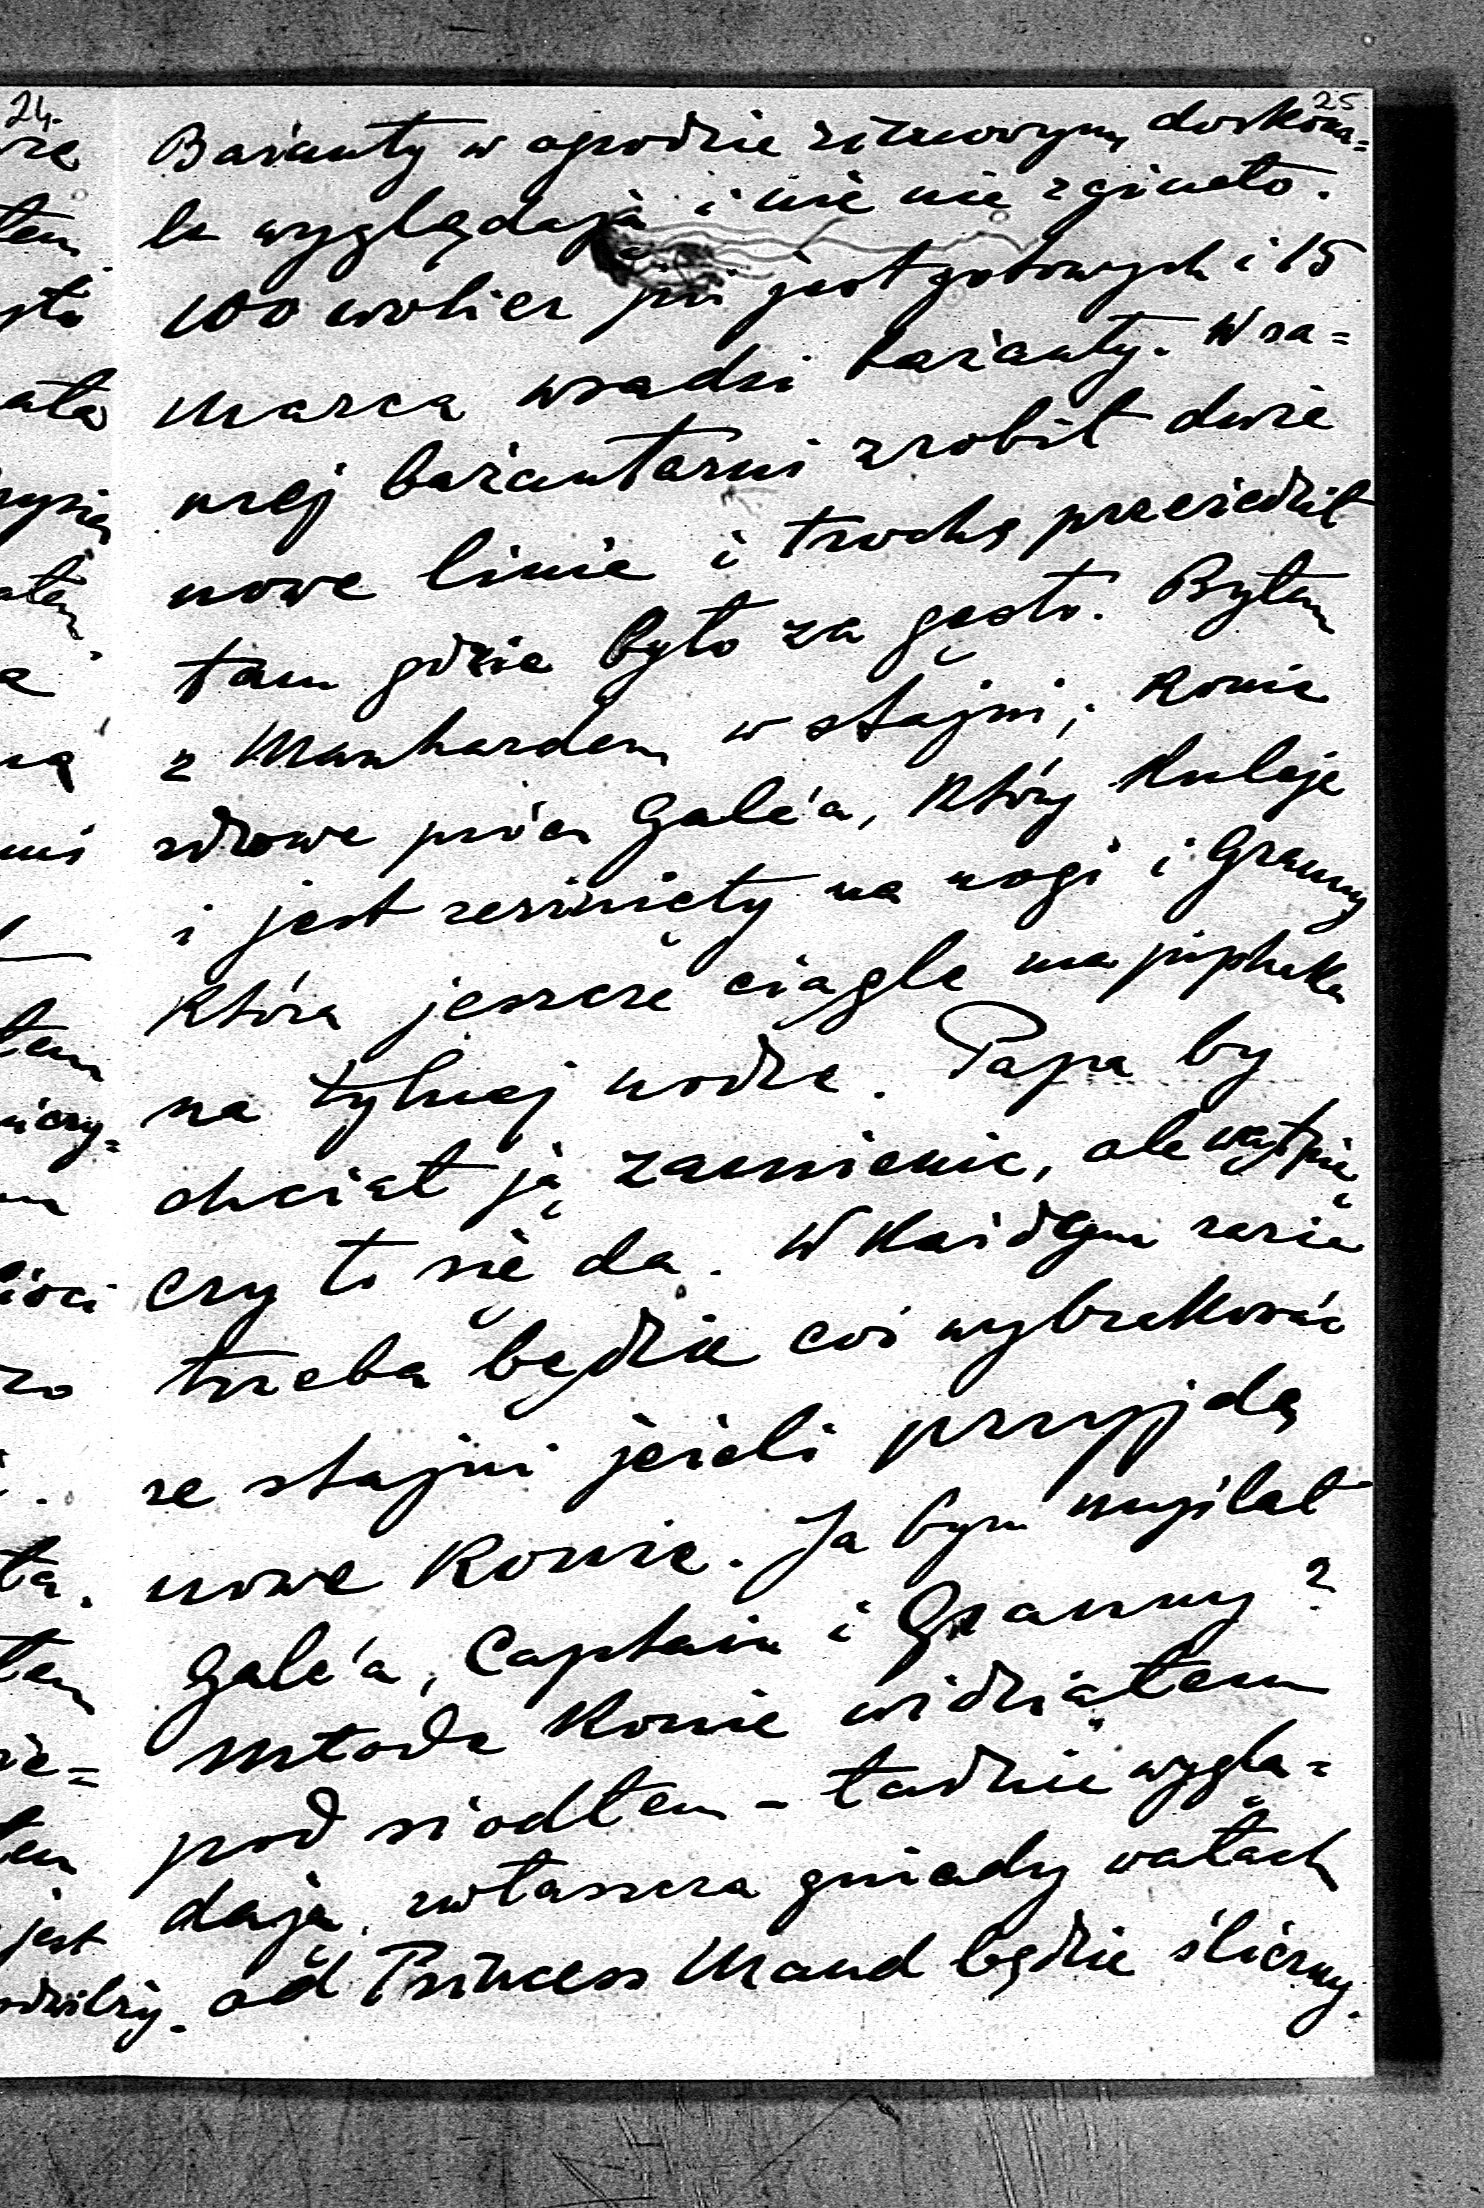 24.
25
Bażanty w ogrodzie zimowym doskona=
le wyglądają i nic nie zginęło.
100 wolier już jest gotowych i 15
marca wsadzi bażanty. W sa=
mej bażantarni zrobił dwie
nowe linie i trochę przerzedził
tam gdzie było za gęsto. Byłem
z Manhardem w stajni; konie
zdrowe prócz Galé'a, który kuleje
i jest zerżnięty na nogi i Granny
która jeszcze ciągle ma piphaka
na tylnej nodze. Papa by
chciał ją zamienić, ale wątpię
czy to się da. W każdym razie
trzeba będzie coś wybrakować
ze stajni jeżeli przyjdą
nowe konie. Ja bym myślał
Galé'a, Captain i Granny?
Młode konie widziałem
pod siodłem – ładnie wyglą=
dają, zwłaszcza gniady wałach
od Princess Maud będzie śliczny.